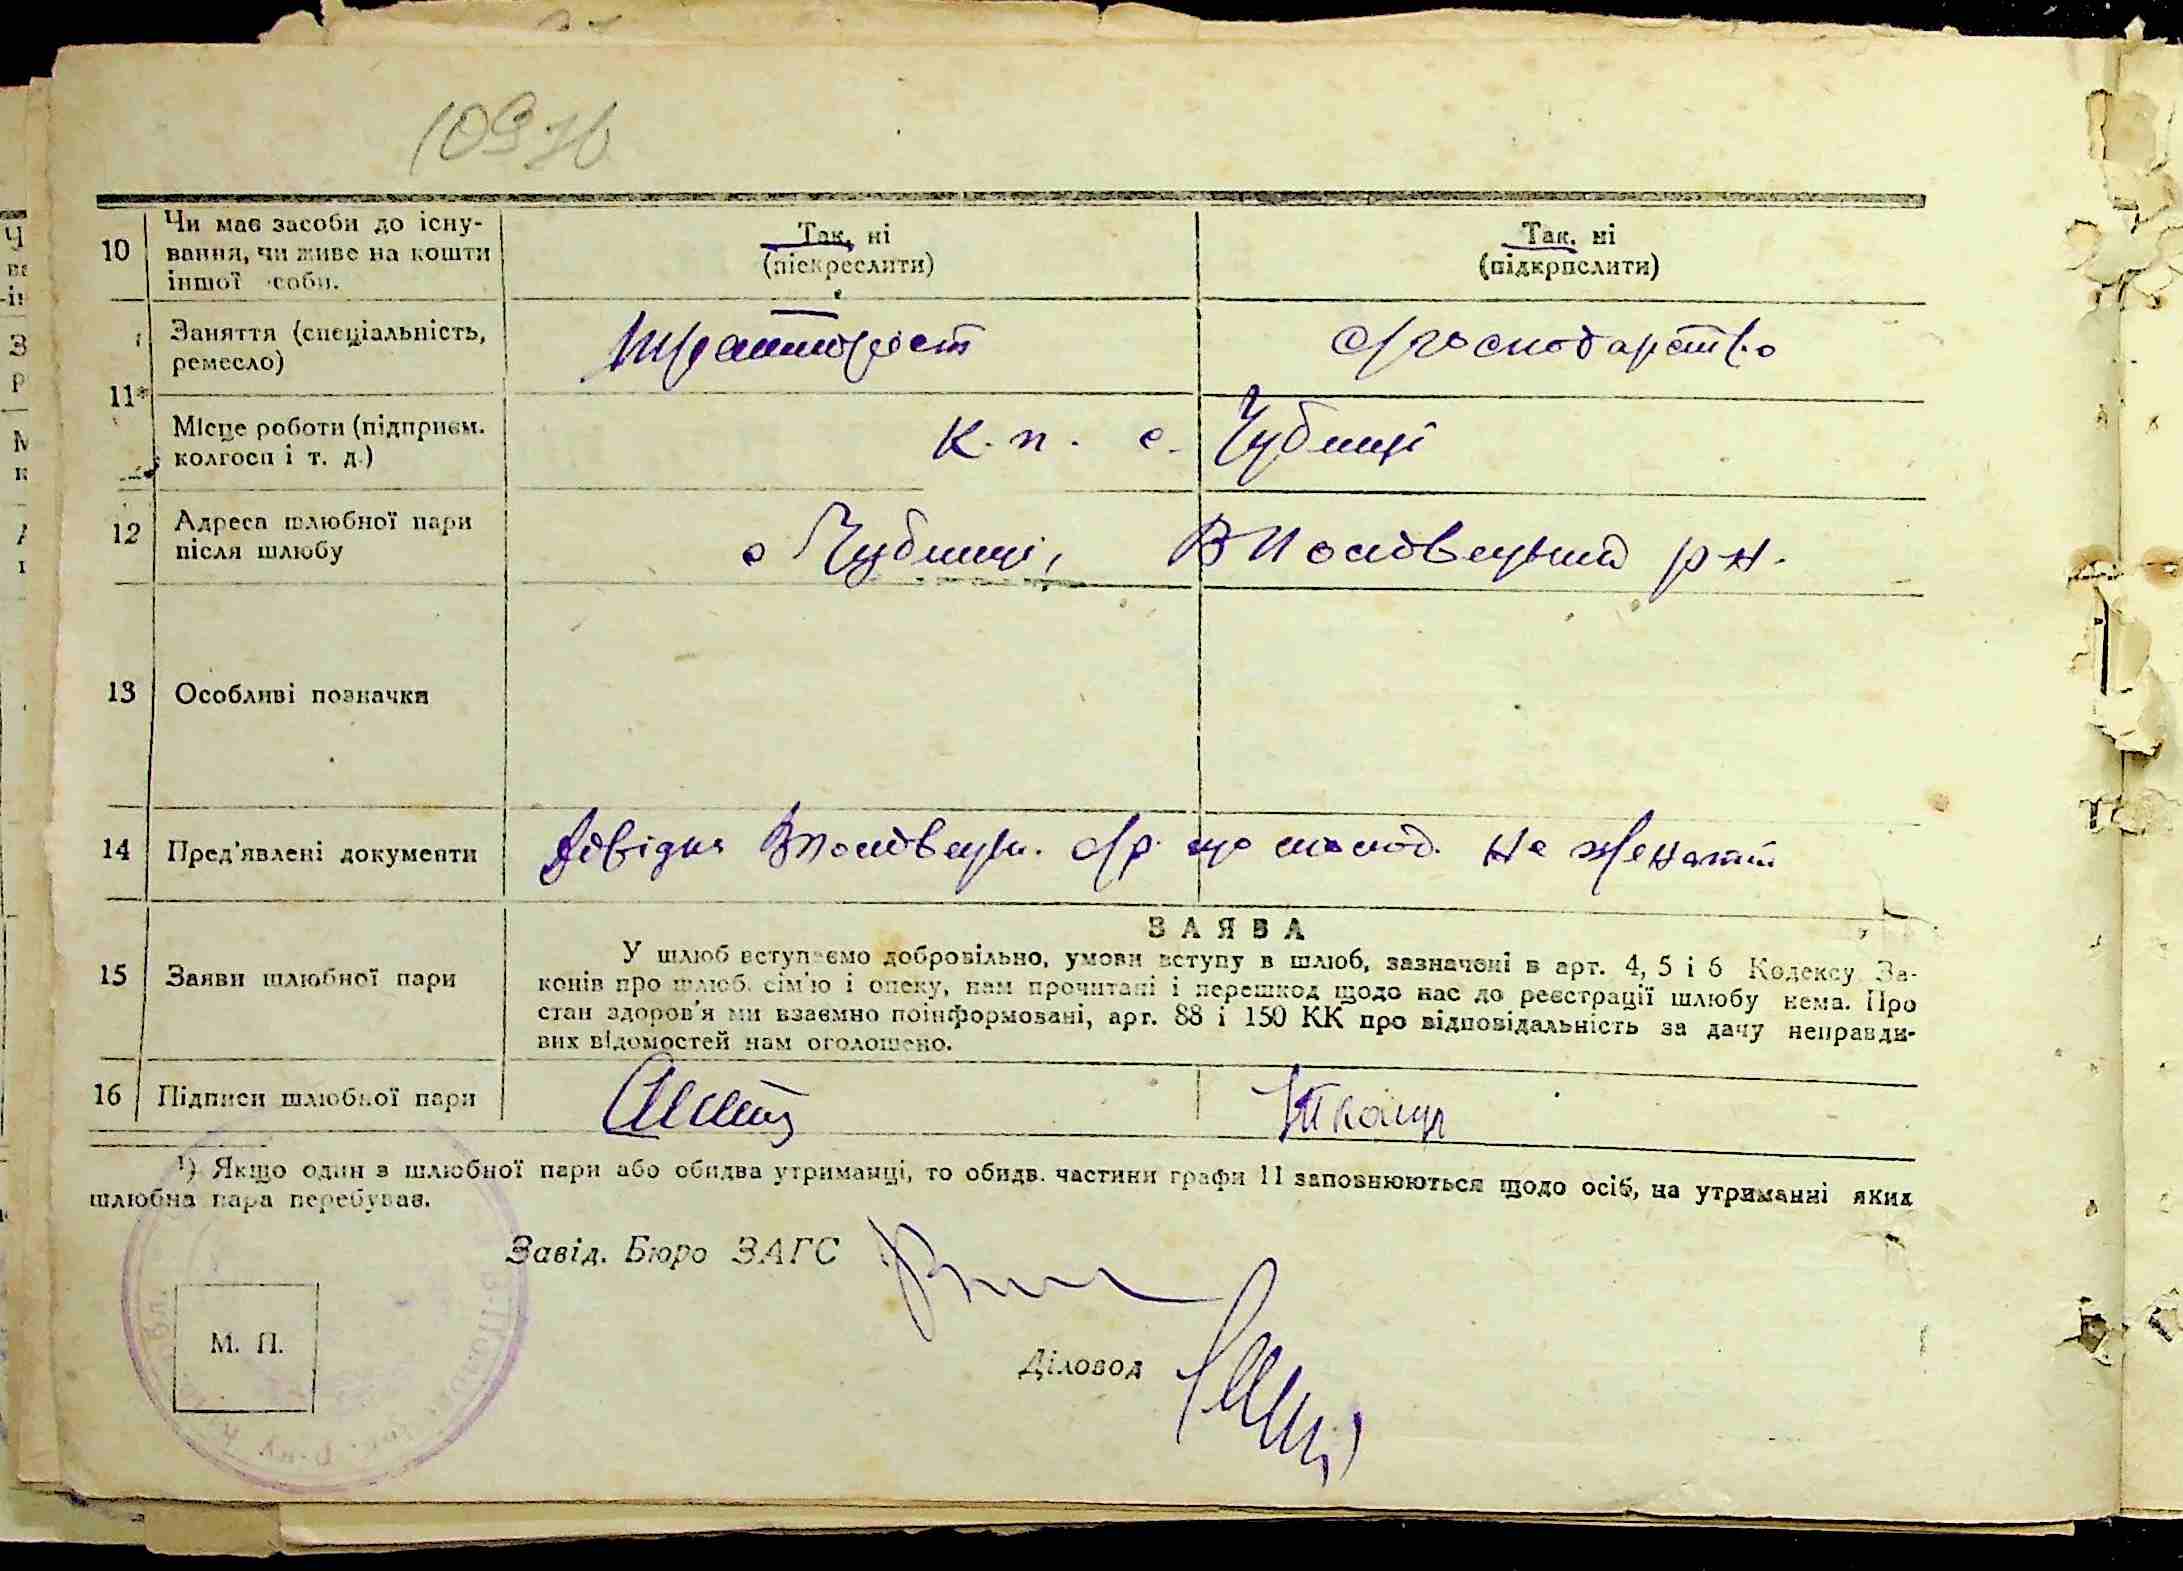 10
Чи має засоби до існу-
вання, чи живе на кошти
іншої соби.
Так, ні
(піскреслити)
Так. ні
(підкрпслити)
11*
Заняття (спеціальність,
ремесло)
тракторист
с/господарство
Місце роботи (підприєм.
колгосп і т. д.)
к. п. с. Чубинці
12
Адреса шлюбної пари
після шлюбу
с Чубинці, ВПоловецький р н.
13
Особливі позначки
14
Пред'явлені документи
Довідка ВПоловецьк. с/р. що молод. не женатий
15
Заяви шлюбної пари
ЗАЯВА
У шлюб вступаємо добровільно, умови вступу в шлюб, зазначені в арт. 4, 5 і 6 Кодексу За-
конів про шлюб. сім'ю і опеку, нам прочитані і перешкод щодо нас до реєстрації шлюбу нема. Про
стан здоров'я ми взаємно поінформовані, арт. 88 і 150 КК про відповідальність за дачу неправди-
вих відомостей нам оголошено.
16
Підписи шлюбної пари
¹) Якщо один з шлюбної пари або обидва утриманці, то обидв. частини графи 11 заповнюються щодо осіб, на утриманні яких
шлюбна пара перебуває.
Завід. Бюро ЗАГС
Діловод
М. П.